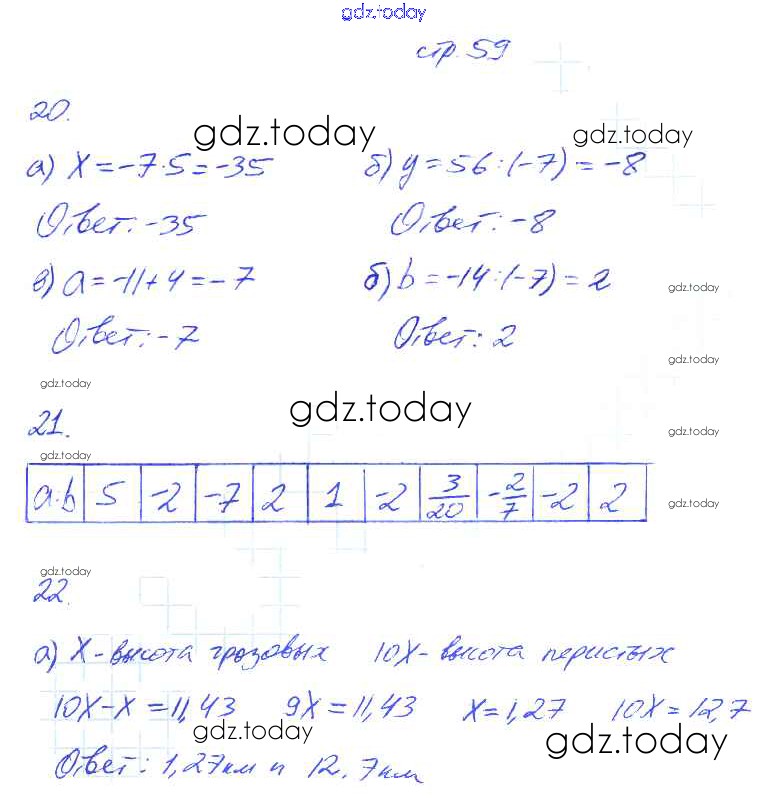 gdz.today
стр. 59
20.
gdz.today gdz.today
а) x = -7·5 = -35 б) y = 56:(-7) = -8
Ответ: -35 Ответ: -8
в) a = -11+4 = -7 б) b = -14:(-7) = 2
gdz.today
Ответ: -7 Ответ: 2
gdz.today
gdz.today
gdz.today
21.
gdz.today
gdz.today
a·b 5 -2 -7 2 1 -2 3/20 -2/7 -2 2
gdz.today
gdz.today
22.
а) x - высота грозовых 10x - высота перистых
10x - x = 11,43 9x = 11,43 x = 1,27 10x = 12,7
gdz.today gdz.today
Ответ: 1,27км и 12.7км